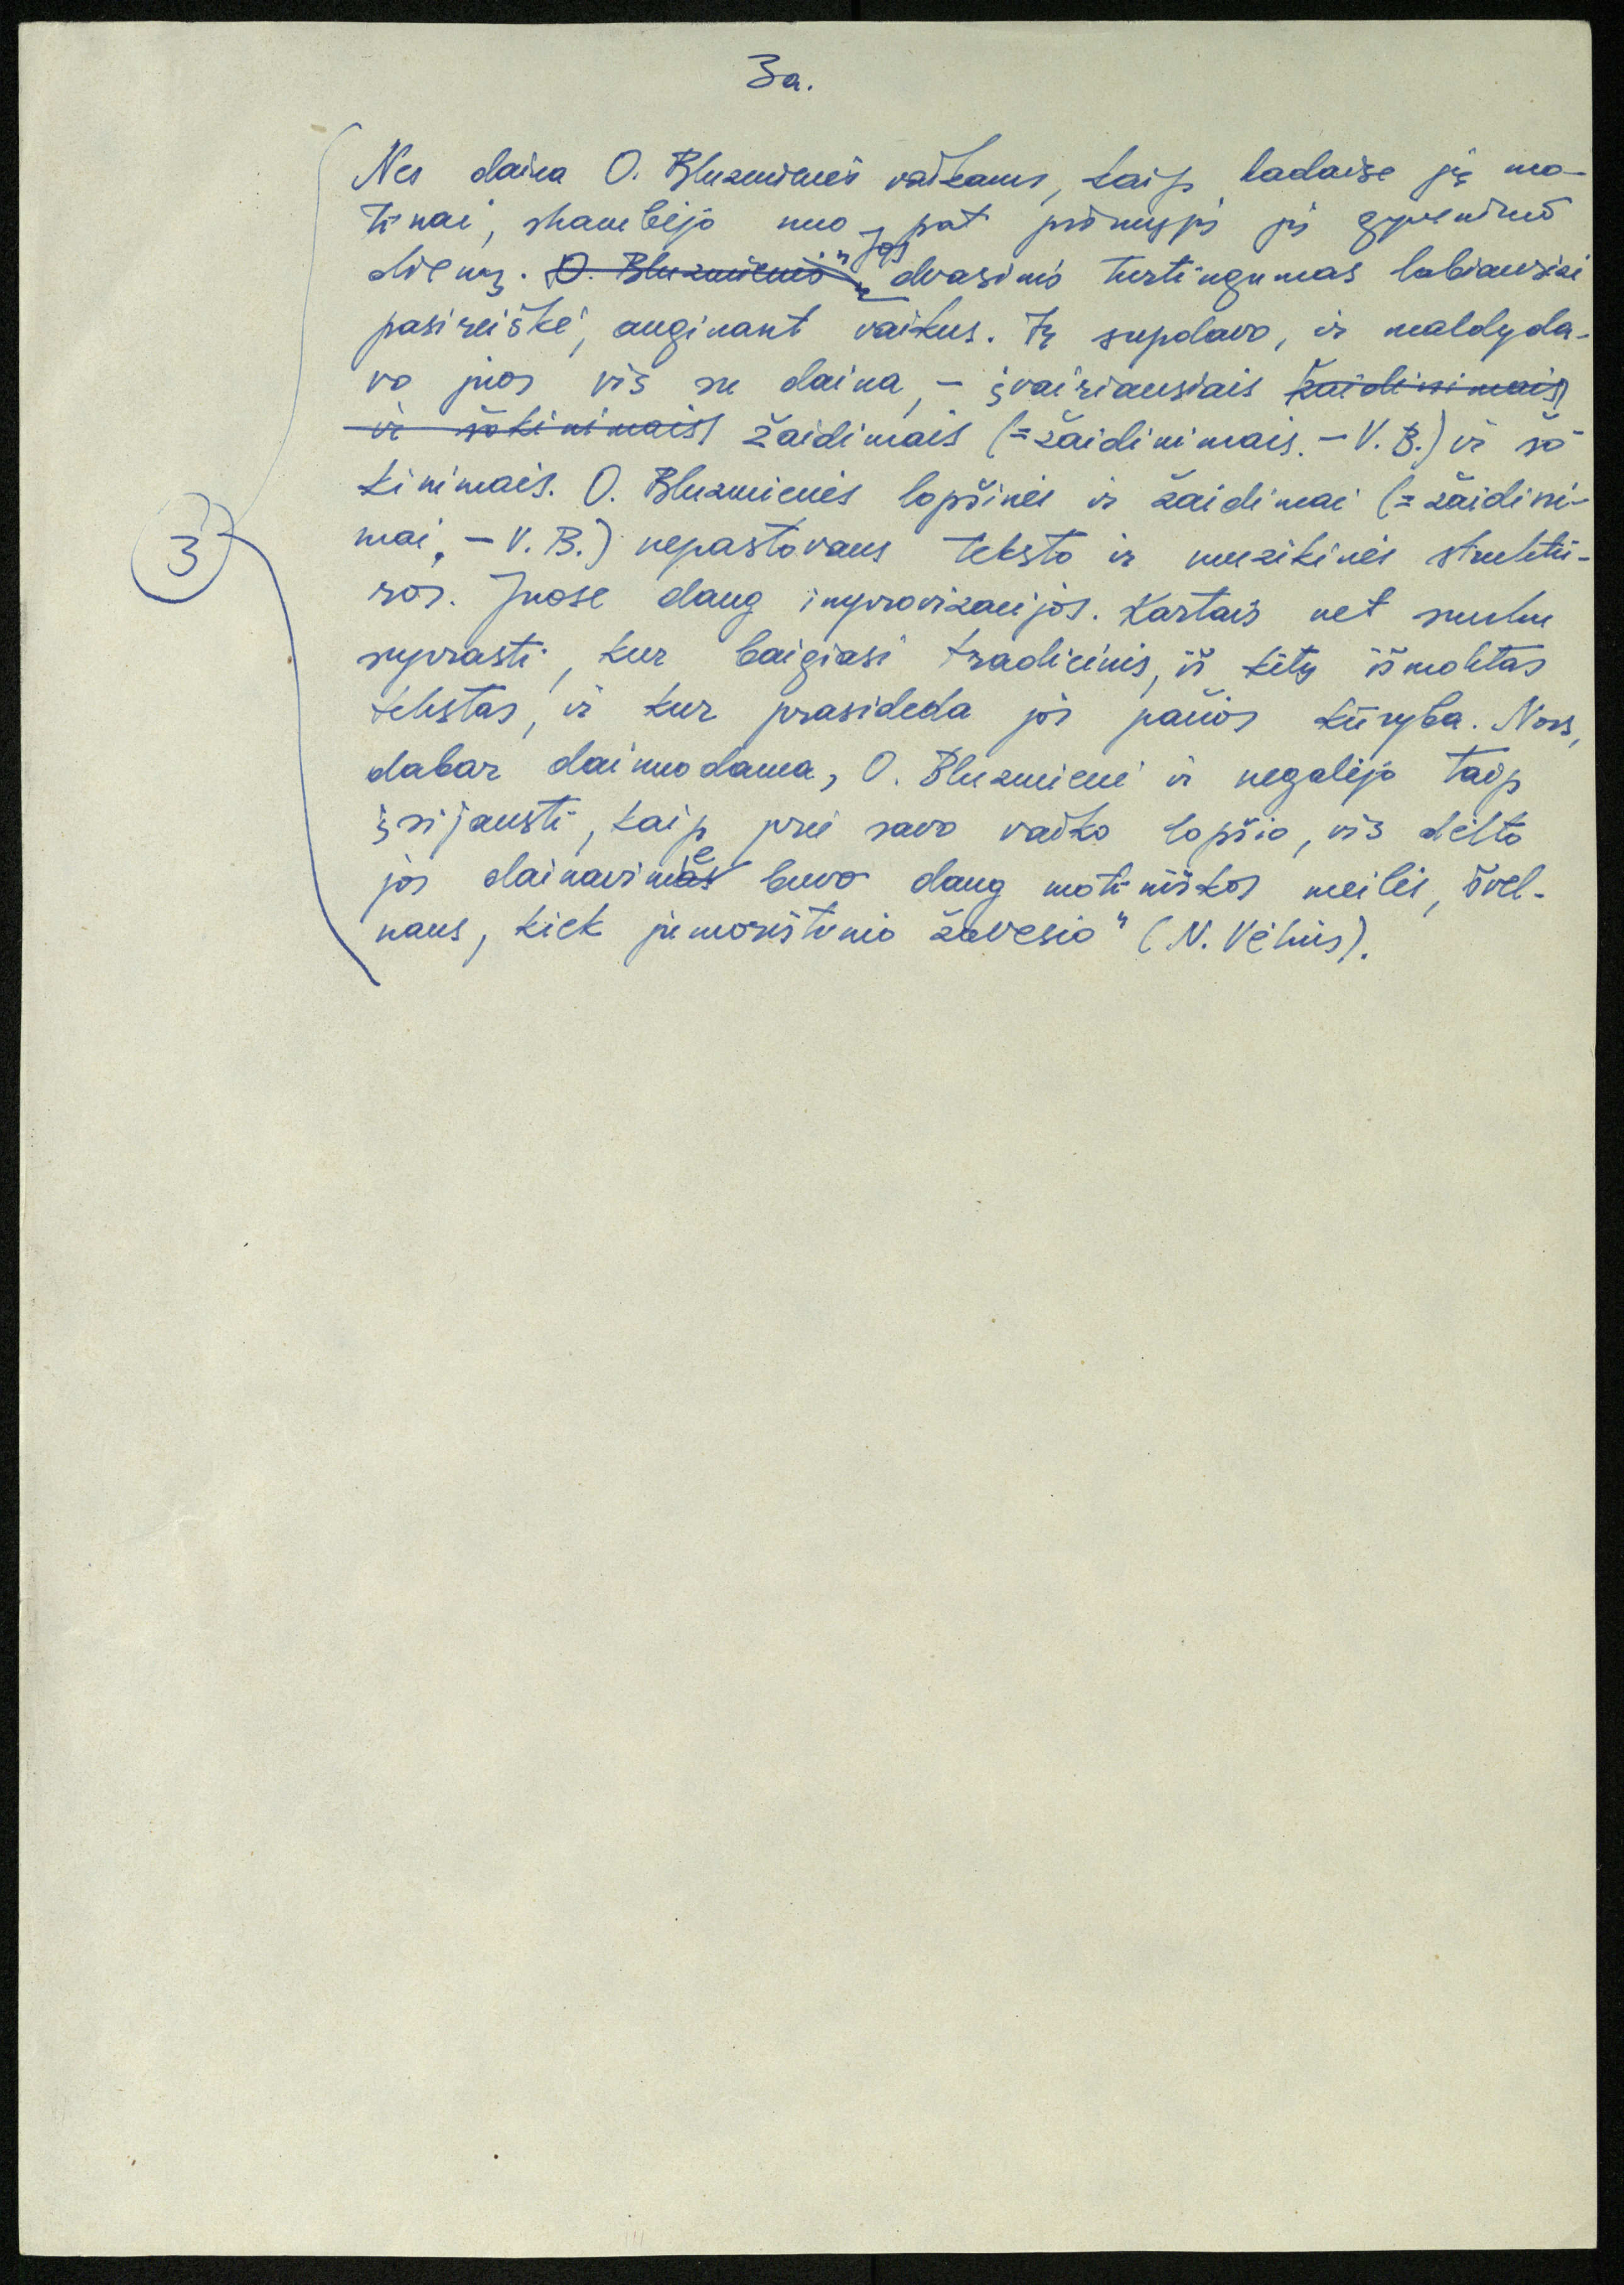 3a.
Nes daina O. Bluzmienės vaikams, kaip kadaise ją mo-
tinai, skambėjo nuo pat pirmųjų jų gyvenimo
dienų. O. Bluzmienės „Jos dvasinis turtingumas labiausiai
pasireiškė, auginant vaikus. Ir supdavo, ir maldyda-
vo juos vis su daina, – įvairiausiais žaidinimais
ir šokinimais žaidimais (=žaidinimais. – V. B.) ir šo
kinimais. O. Bluzmienės lopšinės ir žaidimai (=žaidini-
mai. – V. B.) nepastovaus teksto ir muzikinės struktū-
ros. Juose daug improvizacijos. Kartais net sunku
suprasti, kur baigiasi tradicinis, iš kitų išmoktas
tekstas, ir kur prasideda jos pačios kūryba. Nors,
dabar dainuodama, O. Bluzmienė ir negalėjo taip
įsijausti, kaip prie savo vaiko lopšio, vis dėlto
jos dainavime buvo daug motiniškos meilės, švel-
naus, kiek jumoristinio žavesio“ (N. Vėlius).
3